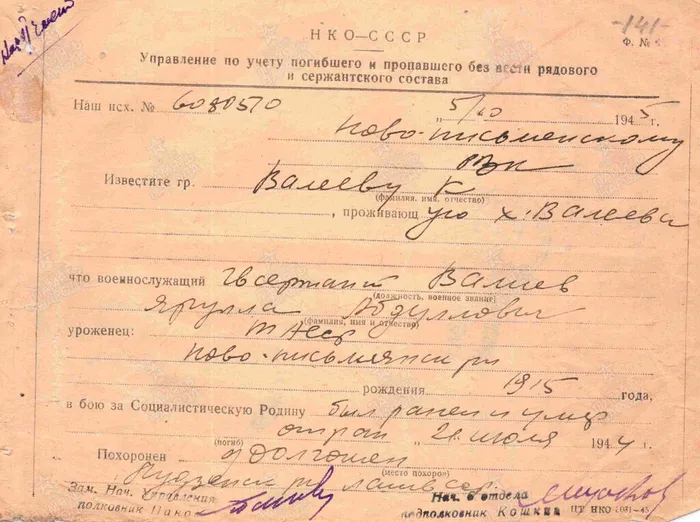 -141-
НКО—СССР
Ф. №
Управление по учету погибшего и пропавшего без вести рядового
и сержантского состава
Наш исх. № 6080570 „5/10 1945 г.
Ново-письменскому
РВК
Известите гр. Валееву К
(фамилия, имя, отчество)
, проживающую х. Валеева
что военнослужащий Гв сержант Валиев
(должность, военное звание)
Ярулла Абдуллович
(фамилия, имя и отчество)
уроженец: ТАССР
Ново-письмянский рн
рождения 1915 года,
в бою за Социалистическую Родину был ранен и умер
от ран 21 июля 1944 г.
(погиб)
Похоронен
(место похорон)
Зам. Нач. Управления
полковник
Нач. 6 отдела
подполковник Кошкин
ЦТ НКО